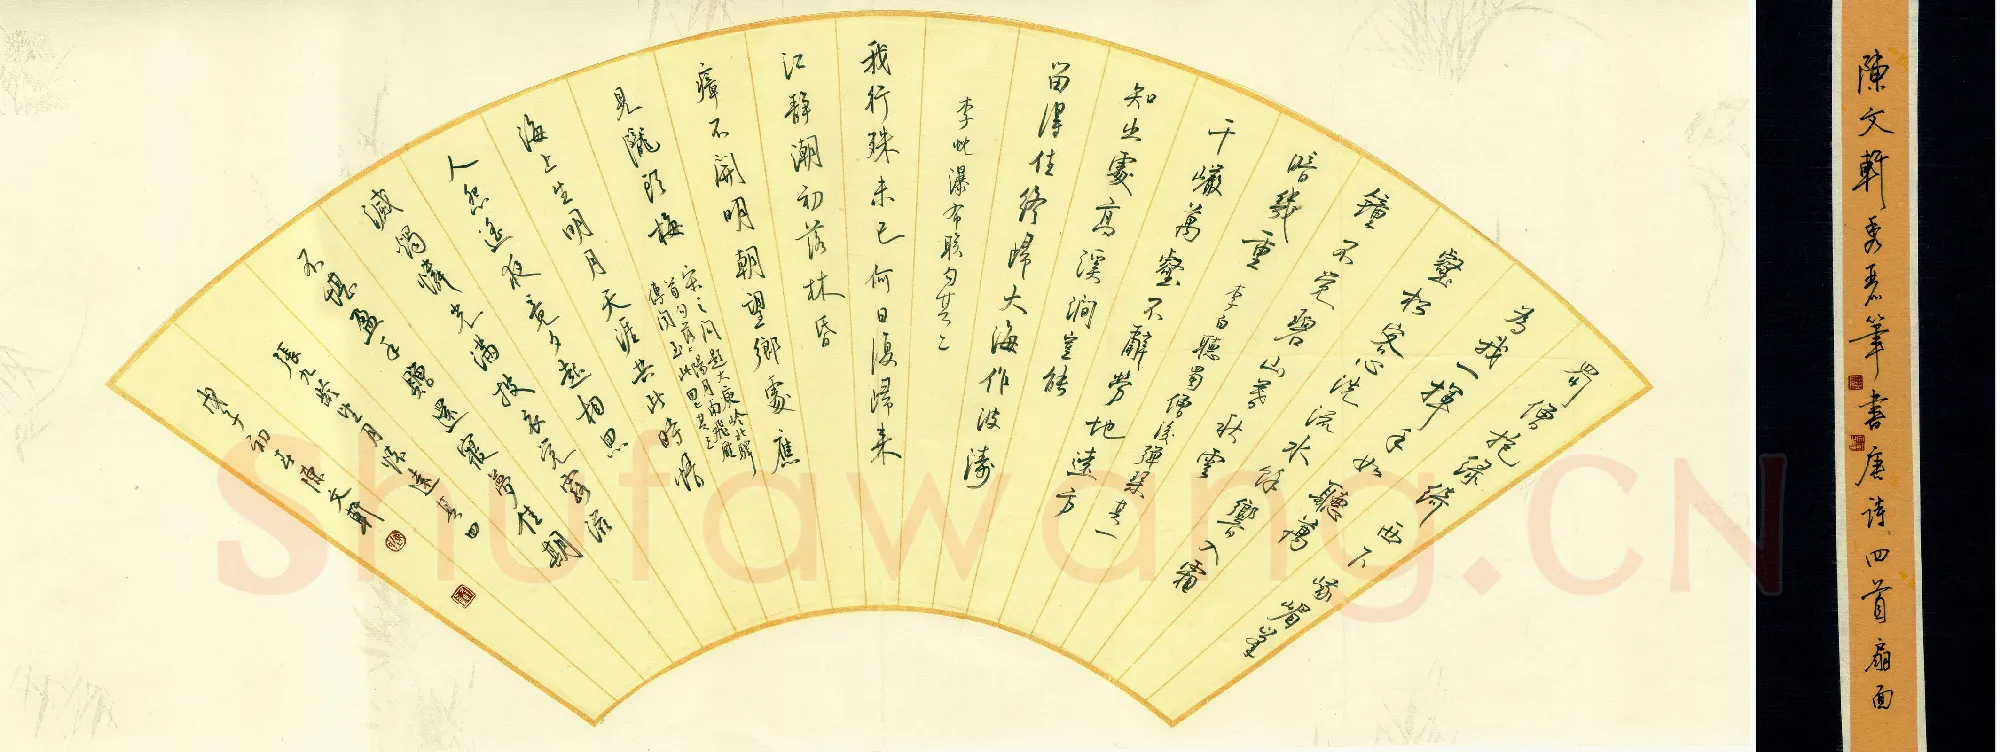 蜀僧抱绿绮西下峨嵋峯
为我一揮手如聽萬
壑松客心洗流水餘響入霜
鐘不覺碧山暮秋雲
暗幾重 李白聽蜀僧濬彈琴其一
千巖萬壑不辭勞地遠方
知出處高溪澗豈能
留得住終歸大海作波濤
李忱瀑布联句其二
我行殊未已何日復歸来
江静潮初落林昏
瘴不開明朝望鄉處應
見隴頭梅
宋之问题大庾岭北驛
首句为陽月南飛雁
傳闻至此回其三
海上生明月天涯共此時情
人怨遥夜竟夕起相思
滅燭憐光滿披衣觉露滋
不堪盈手贈還寢夢佳期
張九齡望月懷遠其四
戊子初春陳文軒
陳文軒秀丽筆書唐诗四首扇面
Shufawang.CN